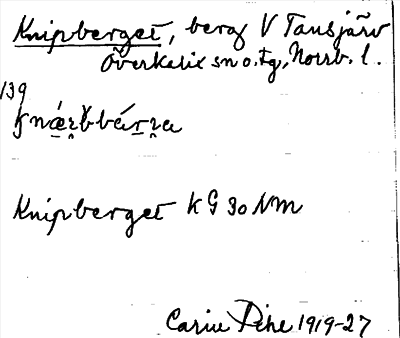 Knipberget, berg V Tansjärv
Överkalix sn o. tg, Norrb. l.
139
Knipberget KG 30 NM
Carin Pihl 1919-27